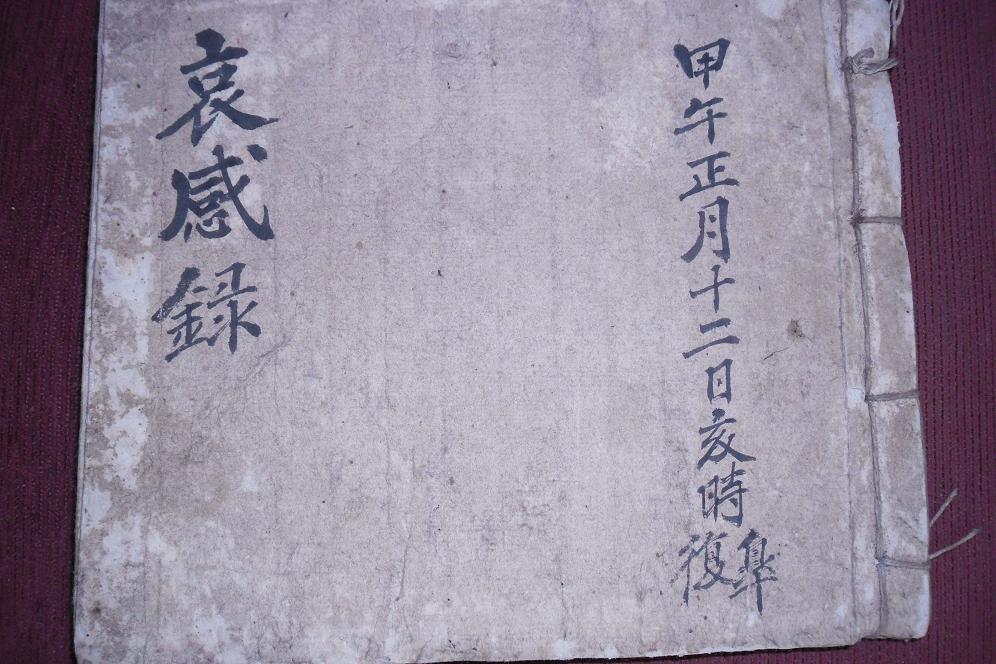 甲午正月十二日亥時皐復
哀感録